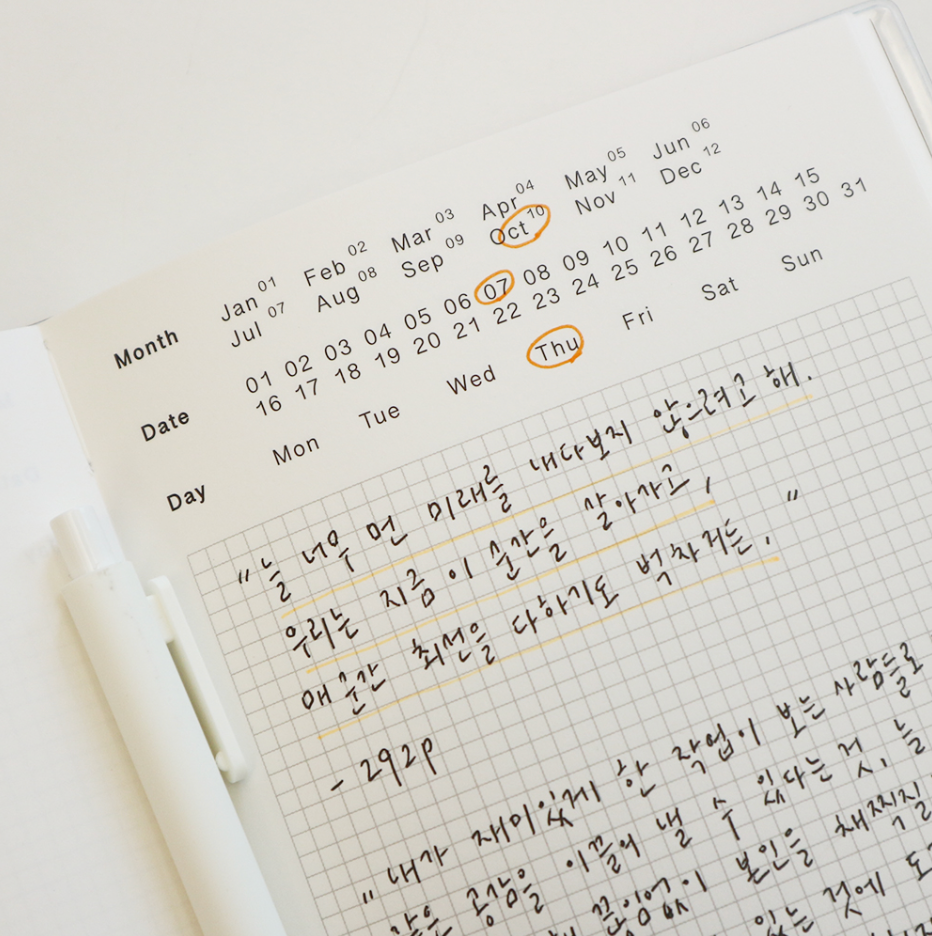 Month Jan 01 Feb 02 Mar 03 Apr 04 May 05 Jun 06
Jul 07 Aug 08 Sep 09 Oct 10 Nov 11 Dec 12
Date 01 02 03 04 05 06 07 08 09 10 11 12 13 14 15
16 17 18 19 20 21 22 23 24 25 26 27 28 29 30 31
Day Mon Tue Wed Thu Fri Sat Sun
"늘 너무 먼 미래를 내다보지 않으려고 해.
우리는 지금 이 순간을 살아가고,
매 순간 최선을 다하기도 벅차거든."
- 292p
"내가 재미있게 한 작업이 보는 사람들로
공감을 이끌어 낼 수 있다는 것, 늘
끊임없이 본인을 채찍질
있는 것에